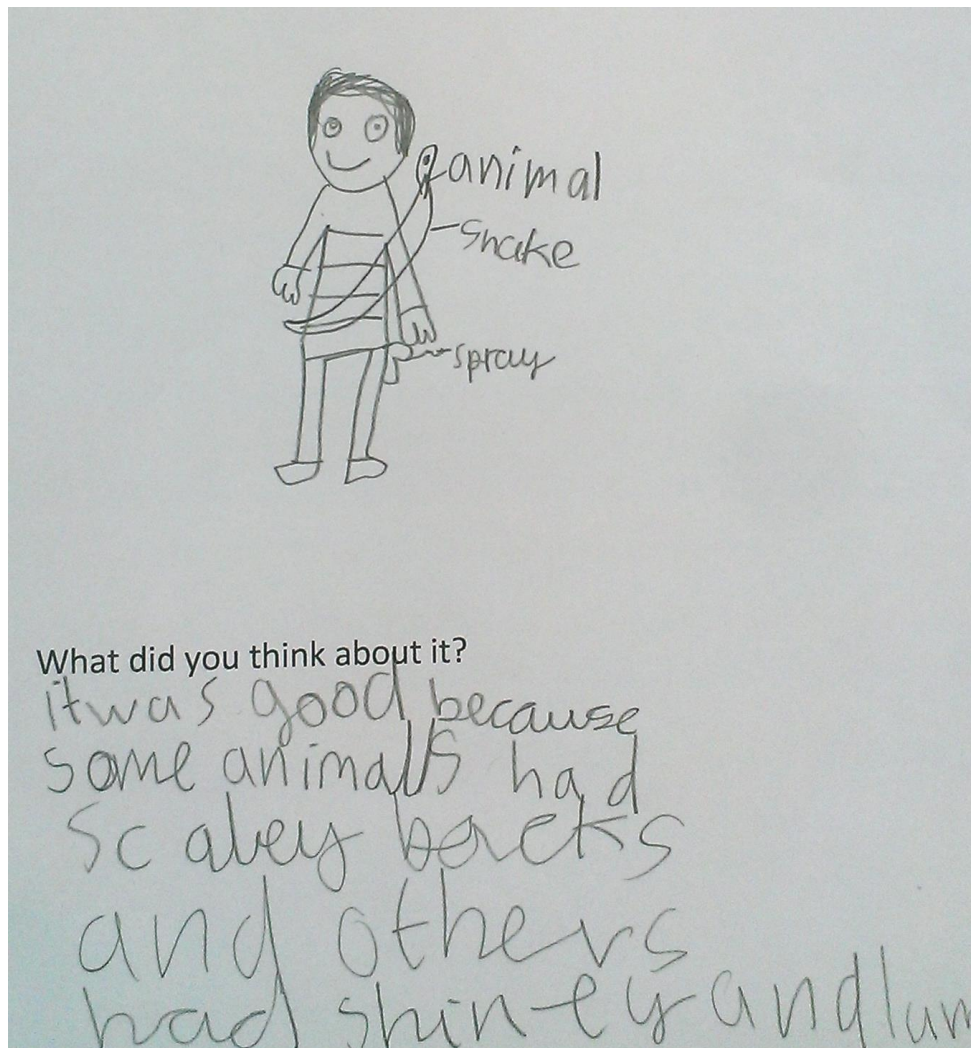 animal
snake
spray
What did you think about it?
it was good because
some animals had
scaley backs
and others
had shiney and lum